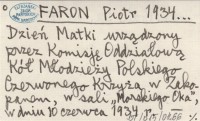 FARON Piotr 1934...
Dzień Matki urządzony
przez Komisję Oddziałową
Kół Młodzieży Polskiego
Czerwonego Krzyża w Zako-
panem, w sali „Morskiego Oka",
w dniu 10 czerwca 1934 r.